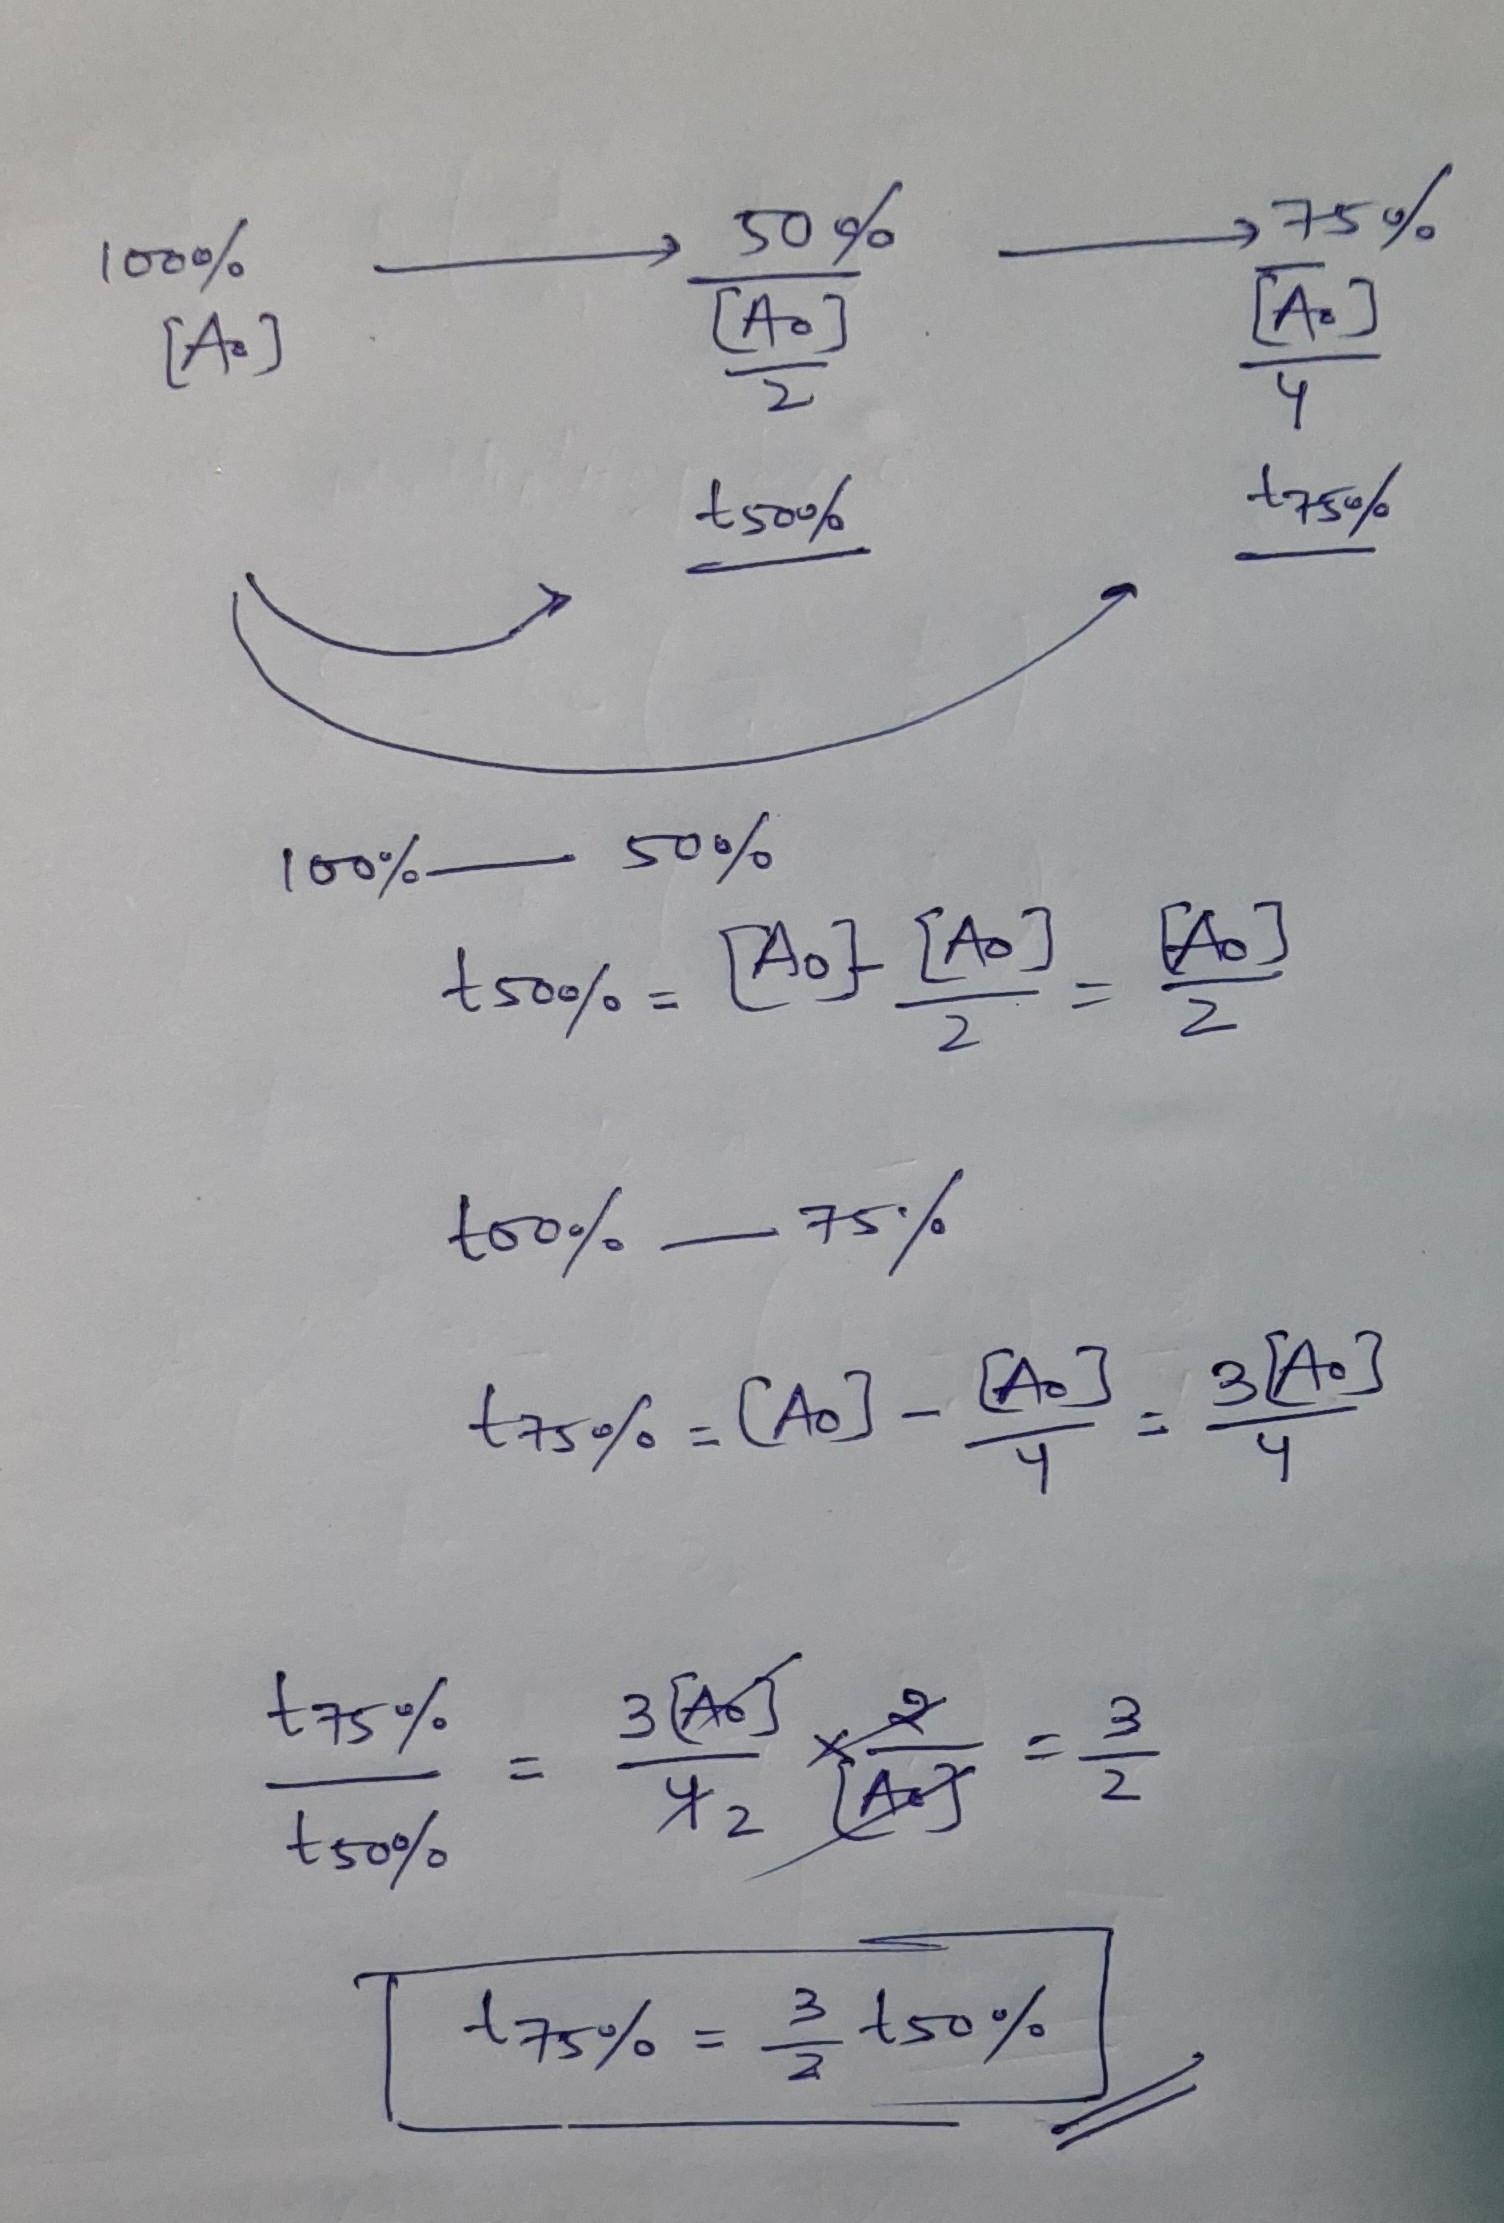 100% → 50% → 75%
[A₀] [A₀]/2 [A₀]/4
t50% t75%
100% — 50%
t50% = [A₀] - [A₀]/2 = [A₀]/2
t00% — 75%
t75% = [A₀] - [A₀]/4 = 3[A₀]/4
t75%/t50% = 3[A₀]/4 2 × 2/[A₀] = 3/2
t75% = 3/2 t50%